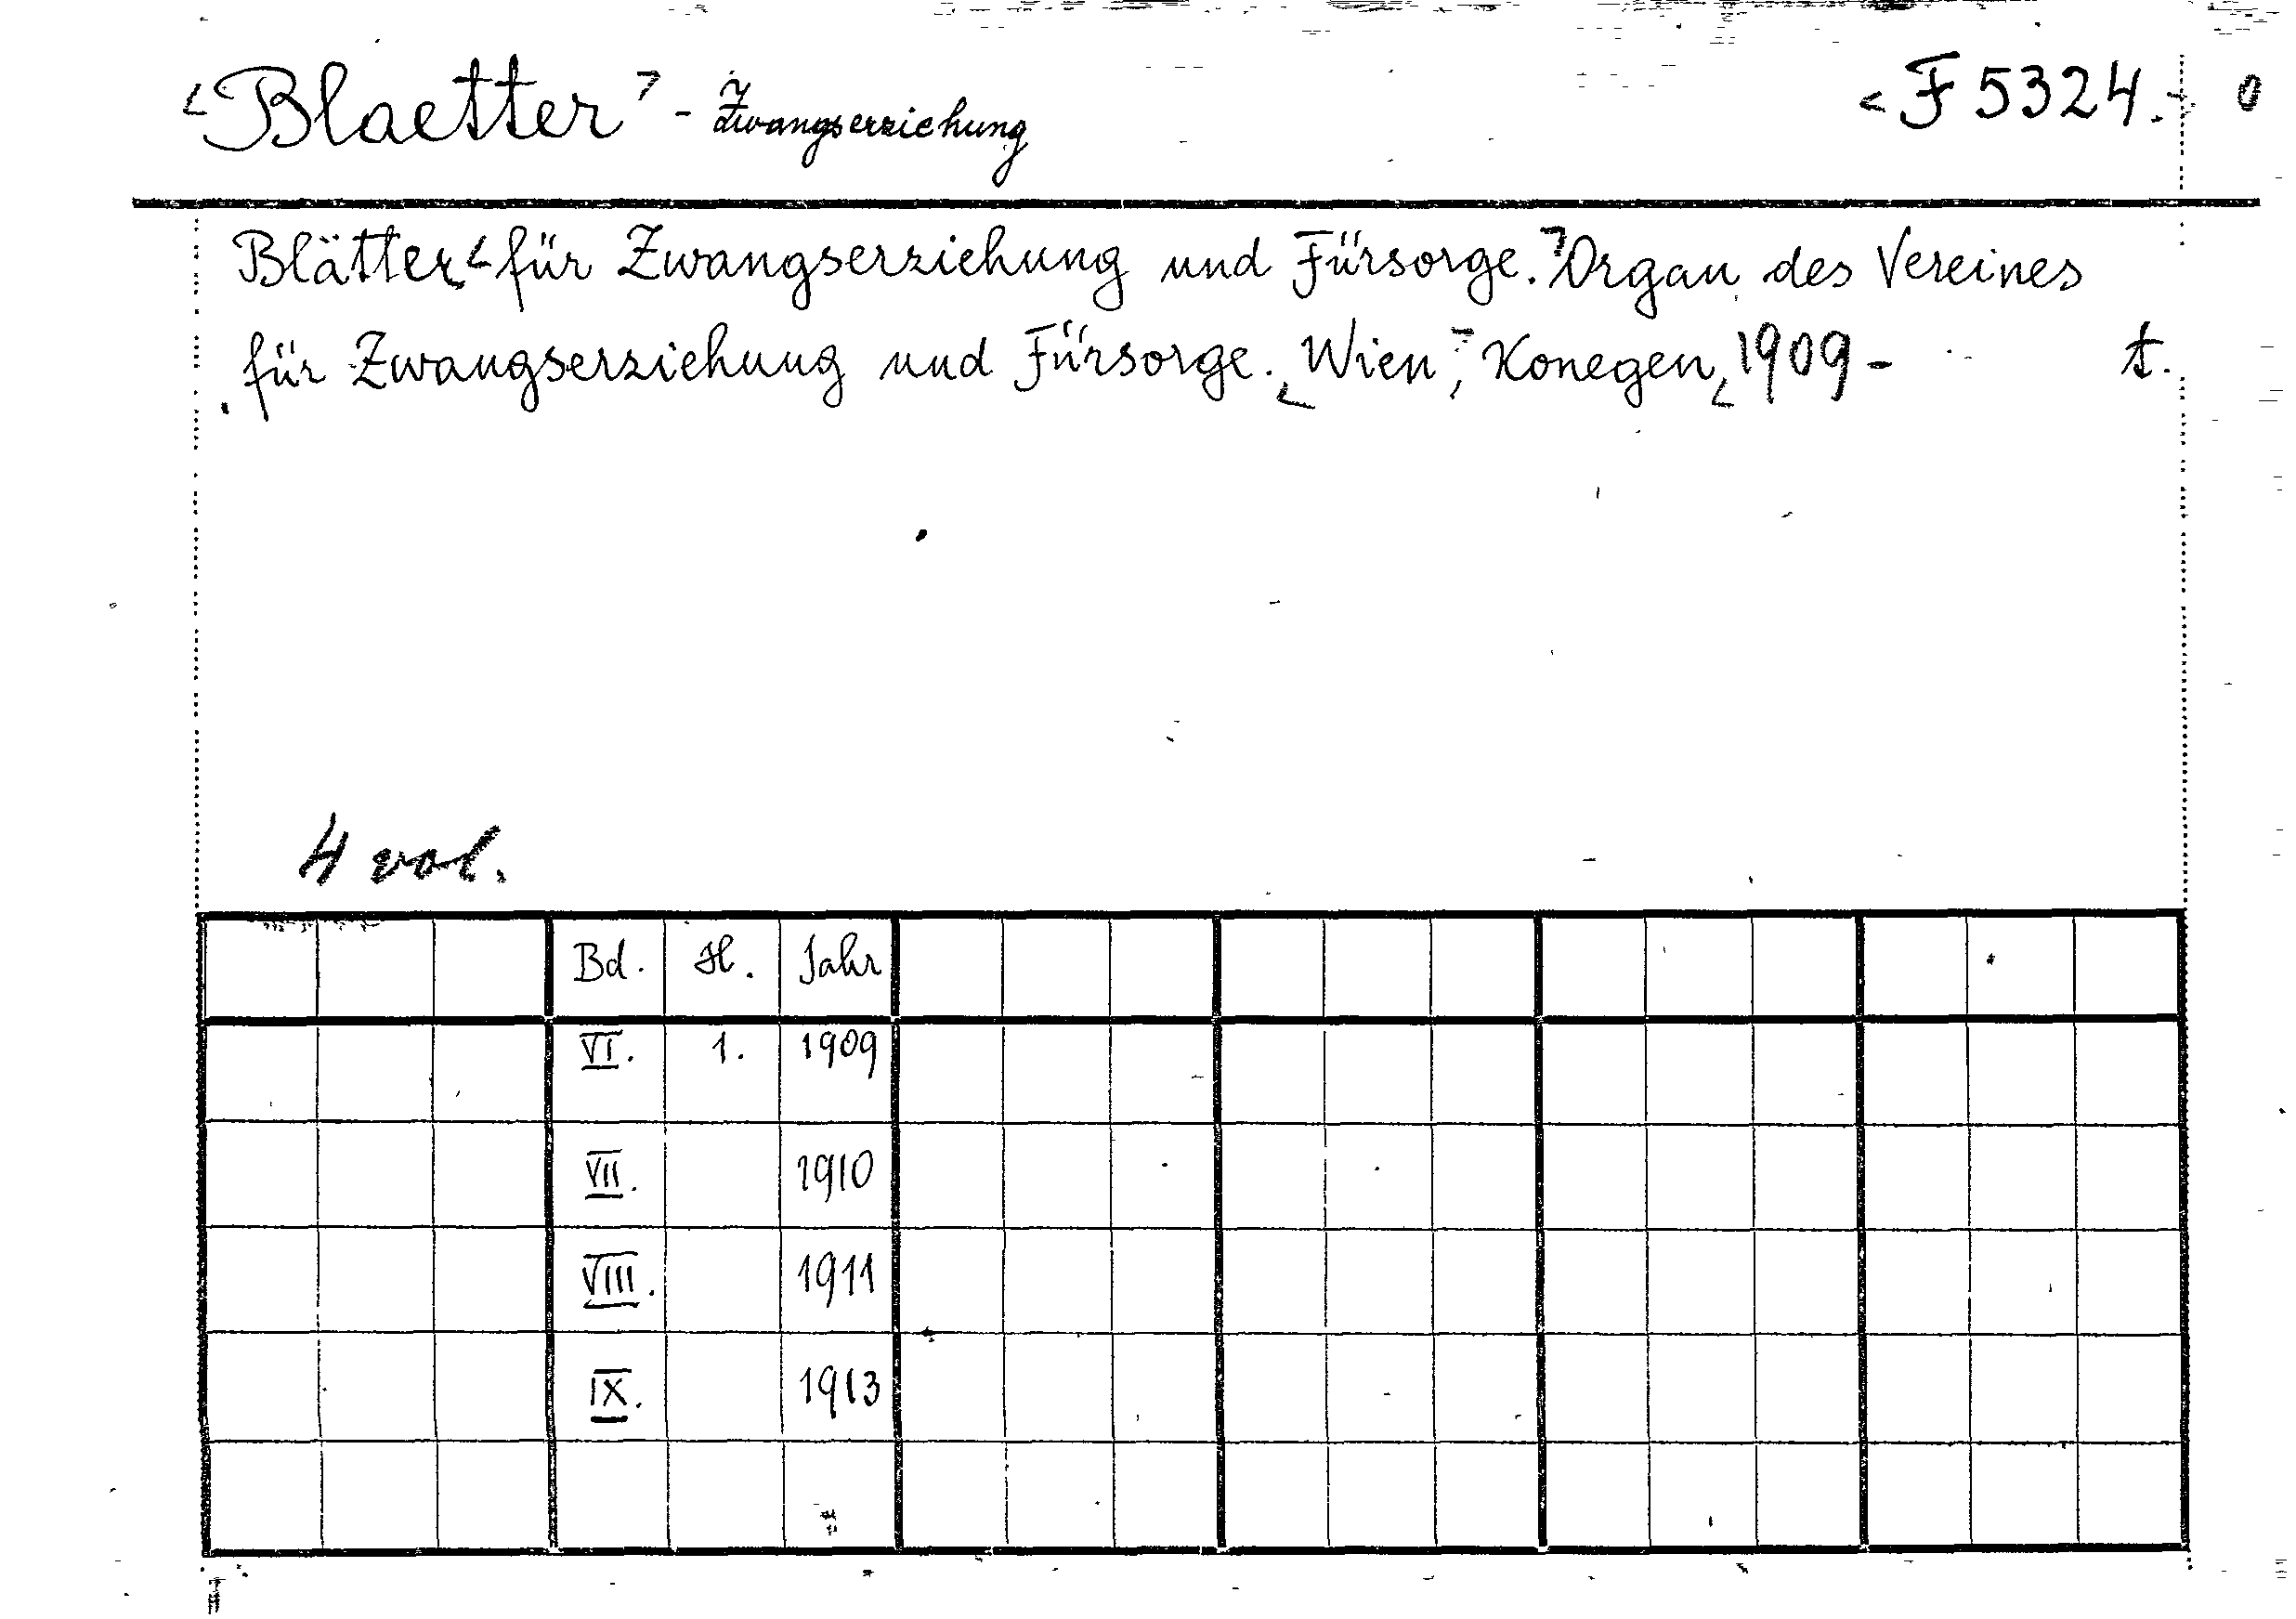 <Blaetter> - Zwangserziehung <F 5324.- 0
Blätter <für Zwangserziehung und Fürsorge.> Organ des Vereines
für Zwangserziehung und Fürsorge. <Wien>, Konegen, <1909 - t.
4 vol.
Bd. H. Jahr
VI. 1. 1909
VII. 1910
VIII. 1911
IX. 1913